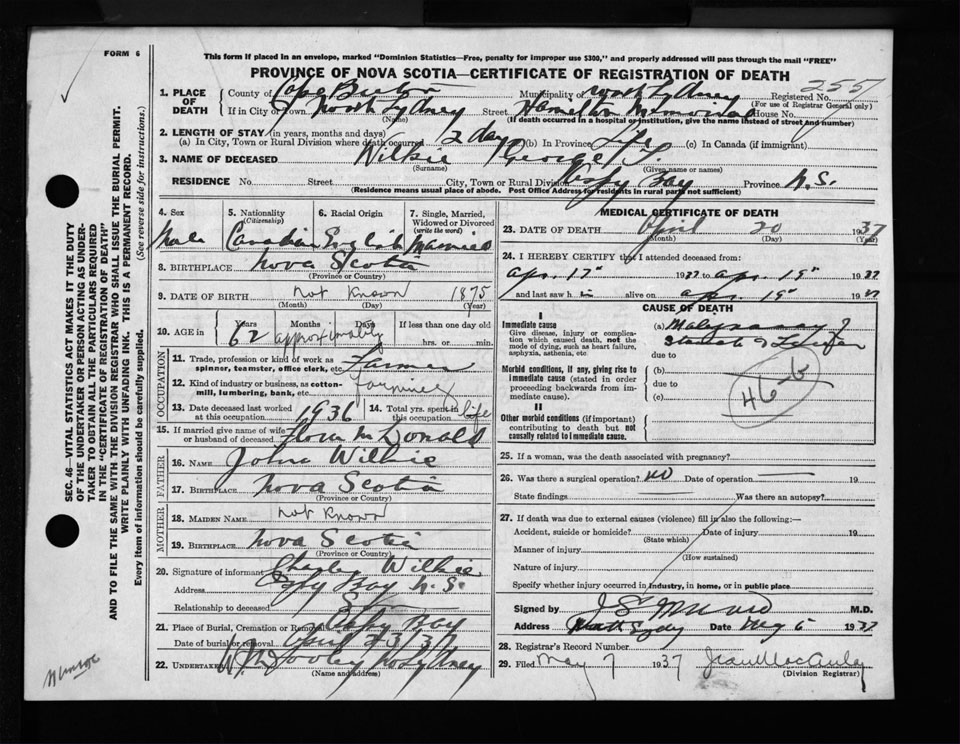 FORM 6
This form if placed in an envelope, marked "Dominion Statistics—Free, penalty for improper use $300," and properly addressed will pass through the mail "FREE"
PROVINCE OF NOVA SCOTIA—CERTIFICATE OF REGISTRATION OF DEATH
255
1. PLACE OF DEATH
County of Cape Breton Municipality of North Sydney Registered No.
(For use of Registrar General only)
If in City or Town North Sydney Street Hamilton Memorial House No.
(Name) (If death occurred in a hospital or institution, give the name instead of street and number)
2. LENGTH OF STAY (in years, months and days)
(a) In City, Town or Rural Division where death occurred 2 days (b) In Province Life (c) In Canada (if immigrant)
3. NAME OF DECEASED Wilkie George
(Surname) (Given name or names)
RESIDENCE No. Street City, Town or Rural Division Bay Province N.S.
(Residence means usual place of abode. Post Office Address for residents in rural parts not sufficient)
4. Sex Male
5. Nationality (Citizenship) Canadian
6. Racial Origin English
7. Single, Married, Widowed or Divorced (write the word) Married
8. BIRTHPLACE Nova Scotia
(Province or Country)
9. DATE OF BIRTH not Known 1875
(Month) (Day) (Year)
10. AGE in Years Months Days If less than one day old
62 approximately hrs. or min.
OCCUPATION
11. Trade, profession or kind of work as spinner, teamster, office clerk, etc. Farmer
12. Kind of industry or business, as cotton-mill, lumbering, bank, etc. farming
13. Date deceased last worked at this occupation 1936
14. Total yrs. spent in this occupation life
15. If married give name of wife or husband of deceased Flora McDonald
FATHER
16. NAME John Wilkie
17. BIRTHPLACE Nova Scotia
(Province or Country)
MOTHER
18. MAIDEN NAME not Known
19. BIRTHPLACE Nova Scotia
(Province or Country)
20. Signature of informant Charles Wilkie
Address Bay N.S.
Relationship to deceased
21. Place of Burial, Cremation or Removal Bay
Date of burial or removal April 23/37
22. UNDERTAKER Dooley No Sydney
(Name and address)
MEDICAL CERTIFICATE OF DEATH
23. DATE OF DEATH April 20 1937
(Month) (Day) (Year)
24. I HEREBY CERTIFY that I attended deceased from:
Apr. 17th 1937 to Apr. 19th 1937
and last saw h im alive on Apr. 19th 1937
CAUSE OF DEATH
I
Immediate cause
Give disease, injury or complication which caused death, not the mode of dying, such as heart failure, asphyxia, asthenia, etc
(a) Malignancy of
Stomach & Liver
due to
Morbid conditions, if any, giving rise to immediate cause (stated in order proceeding backwards from immediate cause).
(b)
due to
(c)
46-b
II
Other morbid conditions (if important) contributing to death but not causally related to immediate cause.
25. If a woman, was the death associated with pregnancy?
26. Was there a surgical operation? no Date of operation 19
State findings Was there an autopsy?
27. If death was due to external causes (violence) fill in also the following:—
Accident, suicide or homicide? Date of injury 19
(State which)
Manner of injury
(How sustained)
Nature of injury
Specify whether injury occurred in industry, in home, or in public place
Signed by M.D.
Address North Sydney Date May 6 1937
28. Registrar's Record Number
29. Filed May 7 1937 Jean MacAulay
(Division Registrar)
SEC. 46—VITAL STATISTICS ACT MAKES IT THE DUTY
OF THE UNDERTAKER OR PERSON ACTING AS UNDER-
TAKER TO OBTAIN ALL THE PARTICULARS REQUIRED
IN THE "CERTIFICATE OF REGISTRATION OF DEATH"
AND TO FILE THE SAME WITH THE DIVISION REGISTRAR WHO SHALL ISSUE THE BURIAL PERMIT.
WRITE PLAINLY WITH UNFADING INK. THIS IS A PERMANENT RECORD.
Every item of information should be carefully supplied. (See reverse side for instructions.)
Munroe